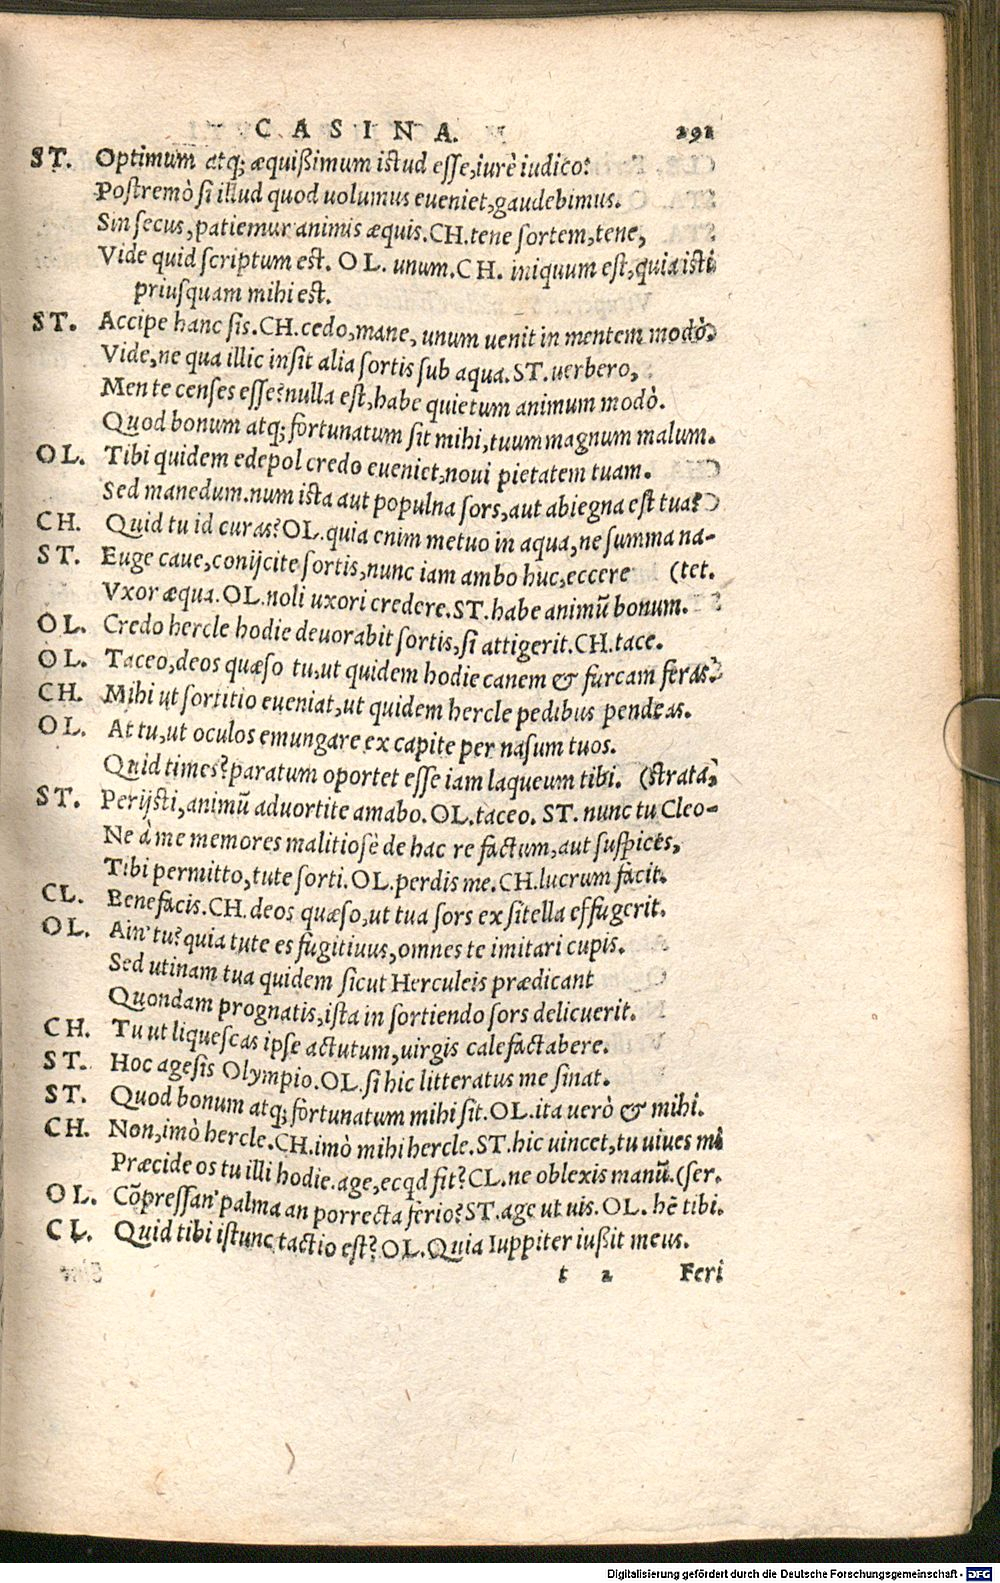 CASINA. 291
ST. Optimum atq; æquißimum istud esse, iurè iudico.
Postremò si illud quod uolumus eueniet, gaudebimus.
Sin secus, patiemur animis æquis. CH. tene sortem, tene,
Vide quid scriptum est. OL. unum. CH. iniquum est, quia isti
priusquam mihi est.
ST. Accipe hanc sis. CH. cedo, mane, unum uenit in mentem modò.
Vide, ne qua illic insit alia sortis sub aqua. ST. uerbero,
Men te censes esse? nulla est, habe quietum animum modò.
Quod bonum atq; fortunatum sit mihi, tuum magnum malum.
OL. Tibi quidem edepol credo eueniet, noui pietatem tuam.
Sed manedum. num ista aut populna sors, aut abiegna est tua?
CH. Quid tu id curas? OL. quia enim metuo in aqua, ne summa na-
ST. Euge caue, conijcite sortis, nunc iam ambo huc, eccere (tet.
Vxor æqua. OL. noli uxori credere. ST. habe animũ bonum.
OL. Credo hercle hodie deuorabit sortis, si attigerit. CH. tace.
OL. Taceo, deos quæso tu, ut quidem hodie canem & furcam feras.
CH. Mihi ut sortitio eueniat, ut quidem hercle pedibus pendeas.
OL. At tu, ut oculos emungare ex capite per nasum tuos.
Quid times? paratum oportet esse iam laqueum tibi. (strata,
ST. Perijsti, animũ aduortite amabo. OL. taceo. ST. nunc tu Cleo-
Ne à me memores malitiosè de hac re factum, aut suspices,
Tibi permitto, tute sorti. OL. perdis me. CH. lucrum facit.
CL. Benefacis. CH. deos quæso, ut tua sors ex sitella effugerit.
OL. Ain' tu? quia tute es fugitiuus, omnes te imitari cupis.
Sed utinam tua quidem sicut Herculeis prædicant
Quondam prognatis, ista in sortiendo sors delicuerit.
CH. Tu ut liquescas ipse actutum, uirgis calefactabere.
ST. Hoc agesis Olympio. OL. si hic litteratus me sinat.
ST. Quod bonum atq; fortunatum mihi sit. OL. ita uerò & mihi.
CH. Non, imò hercle. CH. imò mihi hercle. ST. hic uincet, tu uiues mi
Præcide os tu illi hodie. age, ecqd fit? CL. ne oblexis manũ. (ser.
OL. Cõpressan' palma an porrecta ferio? ST. age ut uis. OL. hẽ tibi.
CL. Quid tibi istunc tactio est? OL. Quia Iuppiter iußit meus.
t 2 Feri
Digitalisierung gefördert durch die Deutsche Forschungsgemeinschaft - DFG